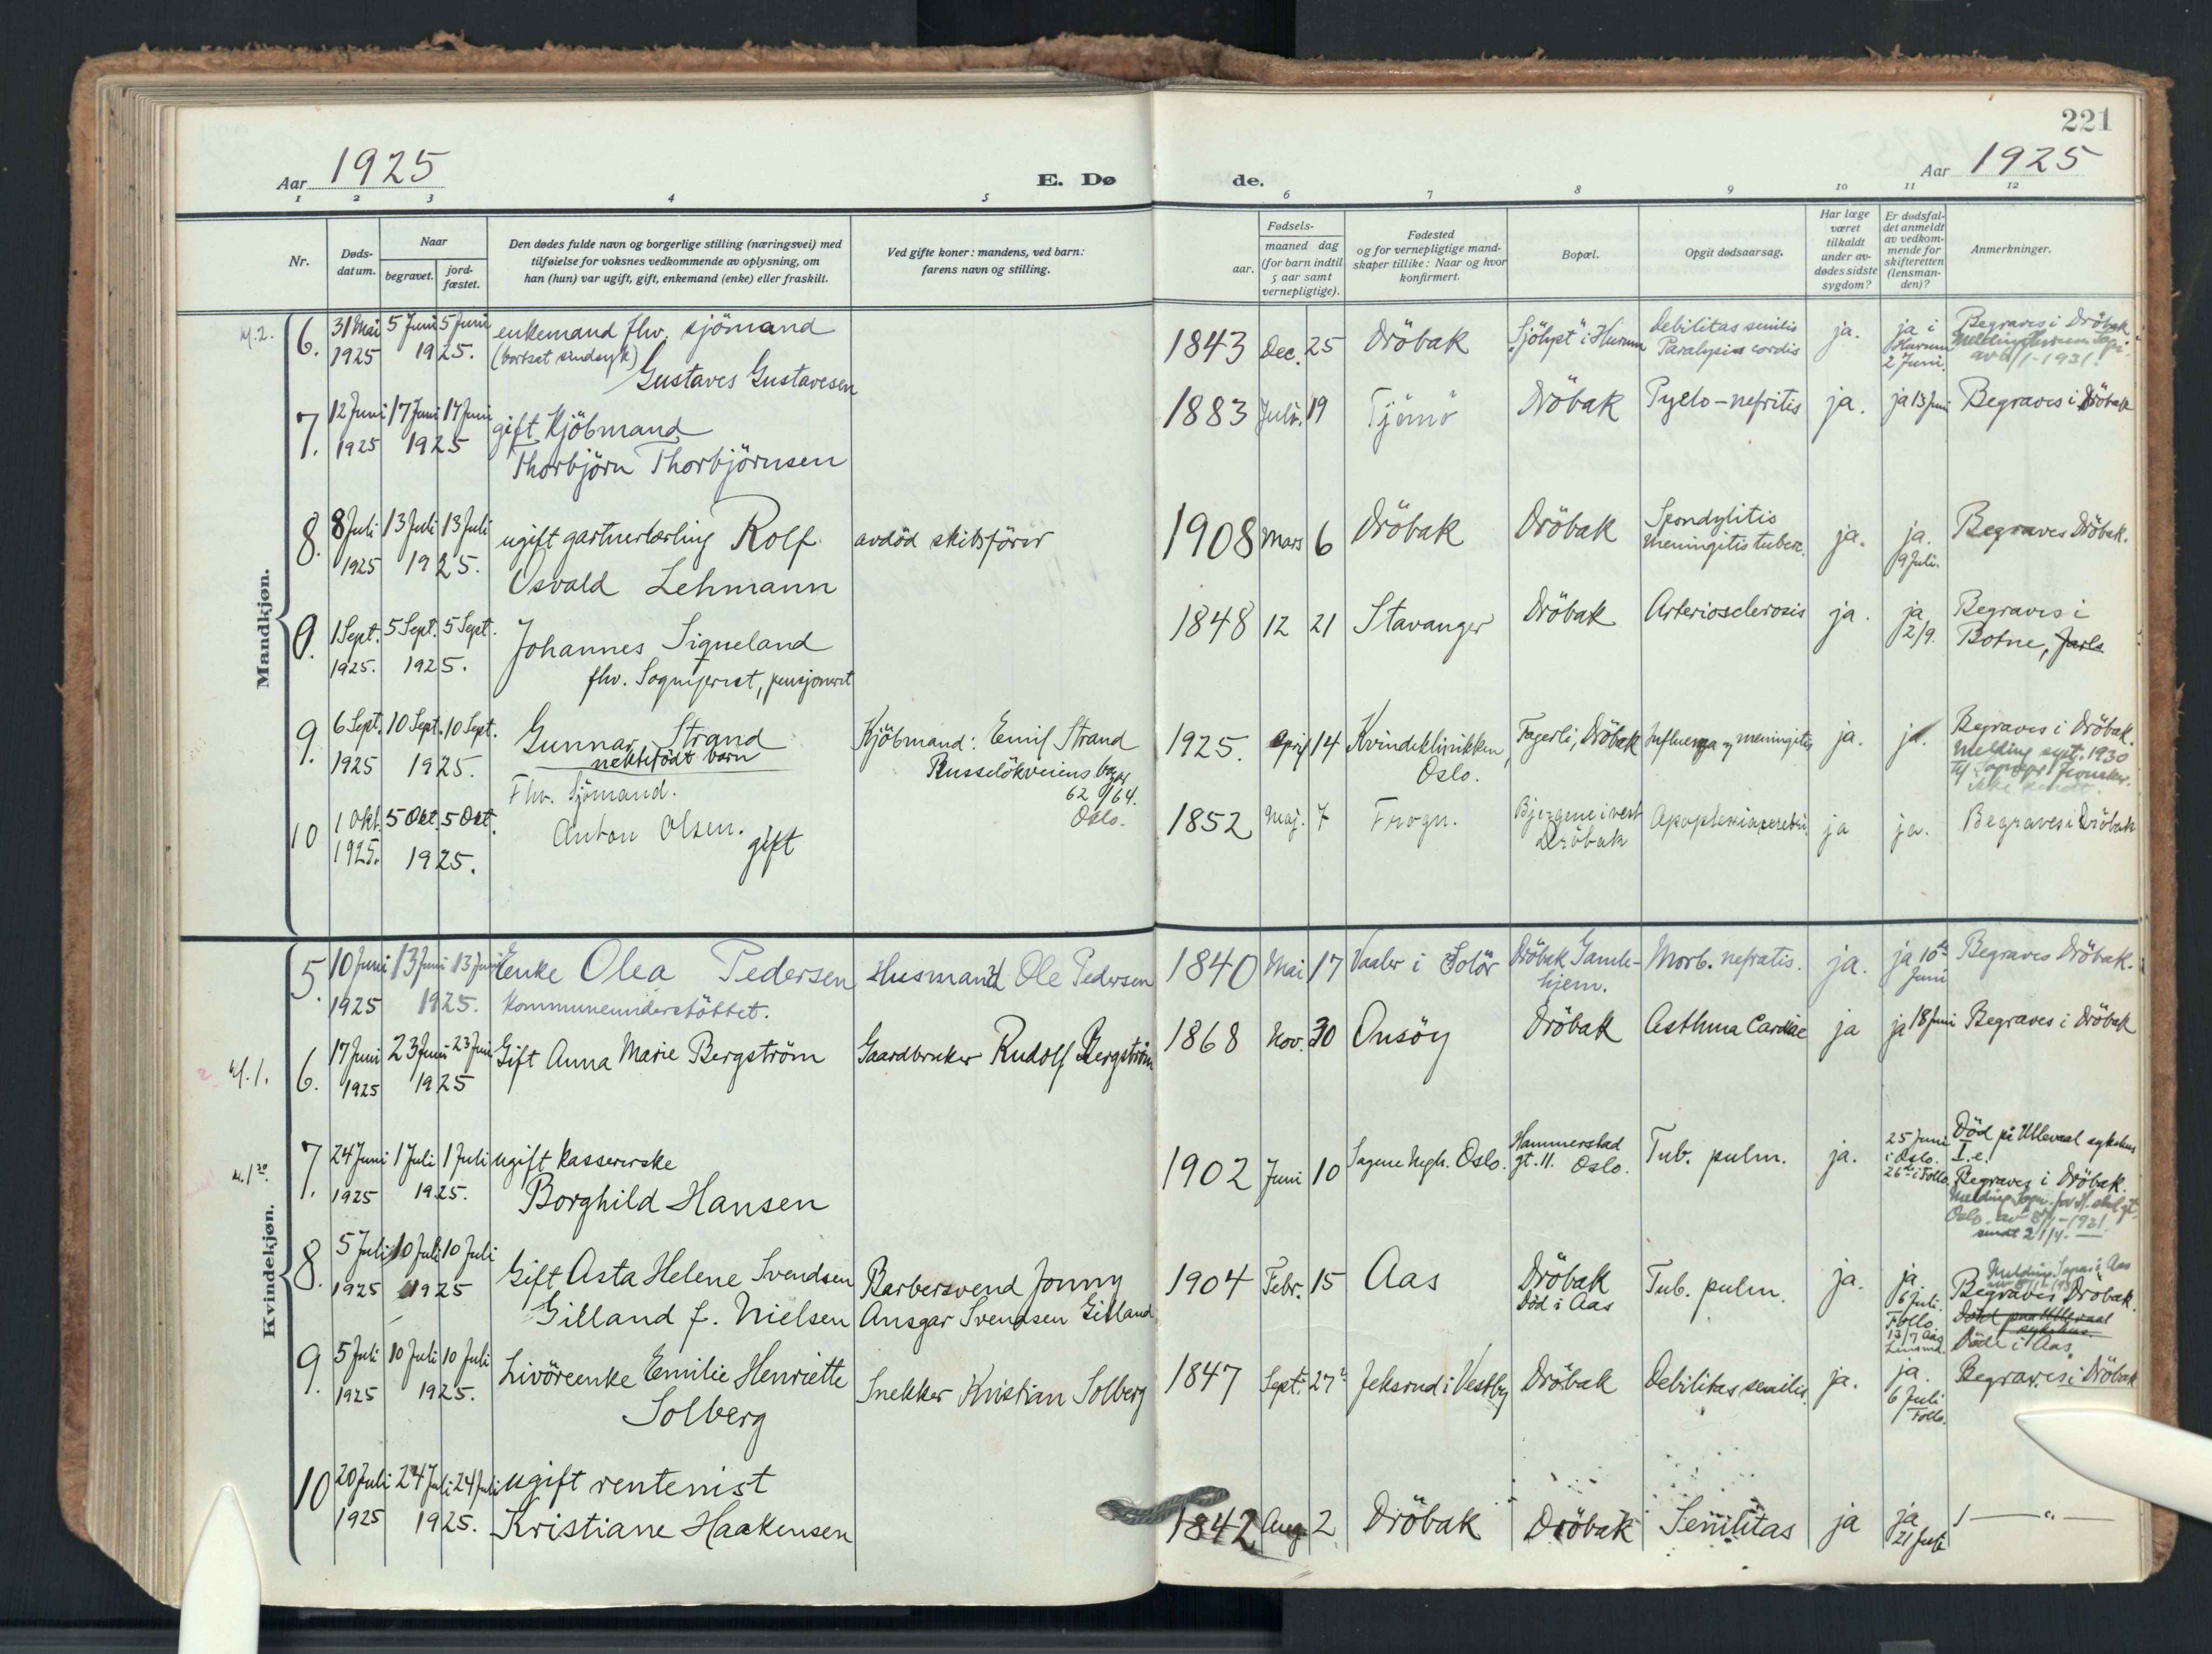 221
Aar 1925
E. Dø
de.
Aar 1925
1 2 3 4 5 6 7 8 9 10 11 12
Nr.
Døds-
datum.
Naar
begravet.
jord-
fæstet.
Den dødes fulde navn og borgerlige stilling (næringsvei) med
tilføielse for voksnes vedkommende av oplysning, om
han (hun) var ugift, gift, enkemand (enke) eller fraskilt.
Ved gifte koner: mandens, ved barn:
farens navn og stilling.
Fødsels-
aar.
maaned dag
(for barn indtil
5 aar samt
vernepligtige).
Fødested
og for vernepligtige mand-
skaper tillike: Naar og hvor
konfirmert.
Bopæl.
Opgit dødsaarsag.
Har læge
været
tilkaldt
under av-
dødes sidste
sygdom?
Er dødsfal-
det anmeldt
av vedkom-
mende for
skifteretten
(lensman-
den)?
Anmerkninger.
Mandkjøn.
6. 31 Mai 5 Juni 5 Juni enkemand fhv. sjömand 1843 Dec. 25 Dröbak "Sjölyst" i Hurum Debilitas senilis ja. ja i Begraves i Dröbak
1925 1925. (bortsat sindsyk) Paralysis cordis Hurum
Gustaves Gustavesen 2 Juni.
7. 12 Juni 17 Juni 17 Juni gift Kjöbmand 1883 Juli. 19 Tjömö Dröbak Pyelo-nefritis ja. ja 13 Juni Begraves i Dröbak
1925 1925 Thorbjörn Thorbjörnsen
8. 8 Juli 13 Juli 13 Juli ugift gartnerlærling Rolf avdöd skibsförer 1908 Mars 6 Dröbak Dröbak Spondylitis ja. ja. Begraves Dröbak.
1925 1925. Osvald Lehmann meningitis tuberc. 9 Juli.
9. 1 Sept. 5 Sept. 5 Sept. Johannes Sigueland 1848 12 21 Stavanger Dröbak Arteriosclerosis ja. ja Begraves i
1925. 1925. fhv. Sogneprest, pensjonert 2/9. Botne, Jarls
9. 6 Sept. 10 Sept. 10 Sept. Gunnar Strand Kjöbmand: Emil Strand 1925. April 14 Kvindeklinikken, Fagerli, Dröbak Influenza og meningitis ja. ja. Begraves i Dröbak.
1925 1925. nektefödt barn Russelökveiens bazar Oslo. Melding sept. 1930
Fhv. Sjömand. 62/64.
Oslo.
10 1 Okt. 5 Okt. 5 Okt. Anton Olsen. gift 1852 Maj. 7 Frogn. Bjergene i vest ja ja. Begraves i Dröbak
1925. 1925. Dröbak
Kvindekjøn.
5. 10 Juni 13 Juni 13 Juni Enke Olea Pedersen Husmand Ole Pedersen 1840 Mai 17 Vaaler i Solör Dröbak Gamle- Morb. nefratis. ja. ja 10de Begraves Dröbak.
1925 1925. Kommuneunderstöttet. hjem. Juni
6. 17 Juni 23 Juni 23 Juni Gift Anna Marie Bergström Gaardbruker Rudolf Bergström 1868 Nov. 30 Onsöy Dröbak Asthma Cardiac ja ja 18 Juni Begraves i Dröbak
1925 1925
7. 24 Juni 1 Juli 1 Juli ugift kassererske 1902 Juni 10 Sagene Megh. Oslo. Hammerstad Tub. pulm. ja. 25 Juni Död på Ullevaal sykehus
1925 1925. Borghild Hansen gt. 11. Oslo. i Oslo. I.e.
26de i Follo. Begraves i Dröbak.
8. 5 Juli 10 Juli 10 Juli Gift Asta Helene Svendsen Barbersvend Jonny 1904 Febr. 15 Aas Dröbak Tub. pulm. ja. ja. Begraves Dröbak.
1925 1925 Gilland f. Nielsen Ansgar Svendsen Gilland Död i Aas 6 Juli. Död paa Ullevaal
Follo sykehus.
13/7 Aas Död i Aas.
Lensmd.
9. 5 Juli 10 Juli 10 Juli Livöreenke Emilie Henriette Snekker Kristian Solberg 1847 Sept. 27 Jeksrud i Vestby Dröbak Debilitas senilis. ja. ja. Begraves i Dröbak
1925 1925. Solberg 6 Juli
Follo.
10 20 Juli 24 Juli 24 Juli ugift rentenist 1842 Aug 2 Dröbak Dröbak Senilitas ja ja — " —
1925 1925. Kristiane Haakensen 21 Juli